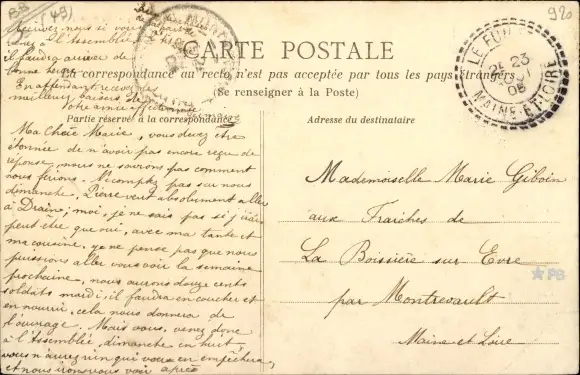 BB (49)
920
Ecrivez-nous si vous
venez à l'Assemblée
il faudra arriver de
bonne heure
En attendant recevez nos
meilleurs baisers
Votre amie affectionnée
CARTE POSTALE
La correspondance au recto n'est pas acceptée par tous les pays étrangers
(Se renseigner à la Poste)
Partie réservée à la correspondance
Adresse du destinataire
LE FUI
23
05
MAINE-ET-LOIRE
Ma Chère Marie, vous devez être
étonnée de n'avoir pas encore reçu de
réponse, nous ne savions pas comment
nous ferions. N'comptez pas sur nous
dimanche, Pierre veut absolument aller
à Drain; moi, je ne sais pas si j'irai
peut être que oui, avec ma tante et
ma cousine, je ne pense pas que nous
puissions aller vous voir la semaine
prochaine, nous aurons douze cents
soldats mardi, il faudra en coucher et
en nourrir, cela nous donnera de
l'ouvrage. Mais vous, venez donc
à l'Assemblée, dimanche en huit,
vous n'aurez rien qui vous en empêchera,
et nous irons vous voir après
Mademoiselle Marie Giboin
aux Fraiches de
La Boissière sur Evre
par Montrevault
Maine et Loire
PB